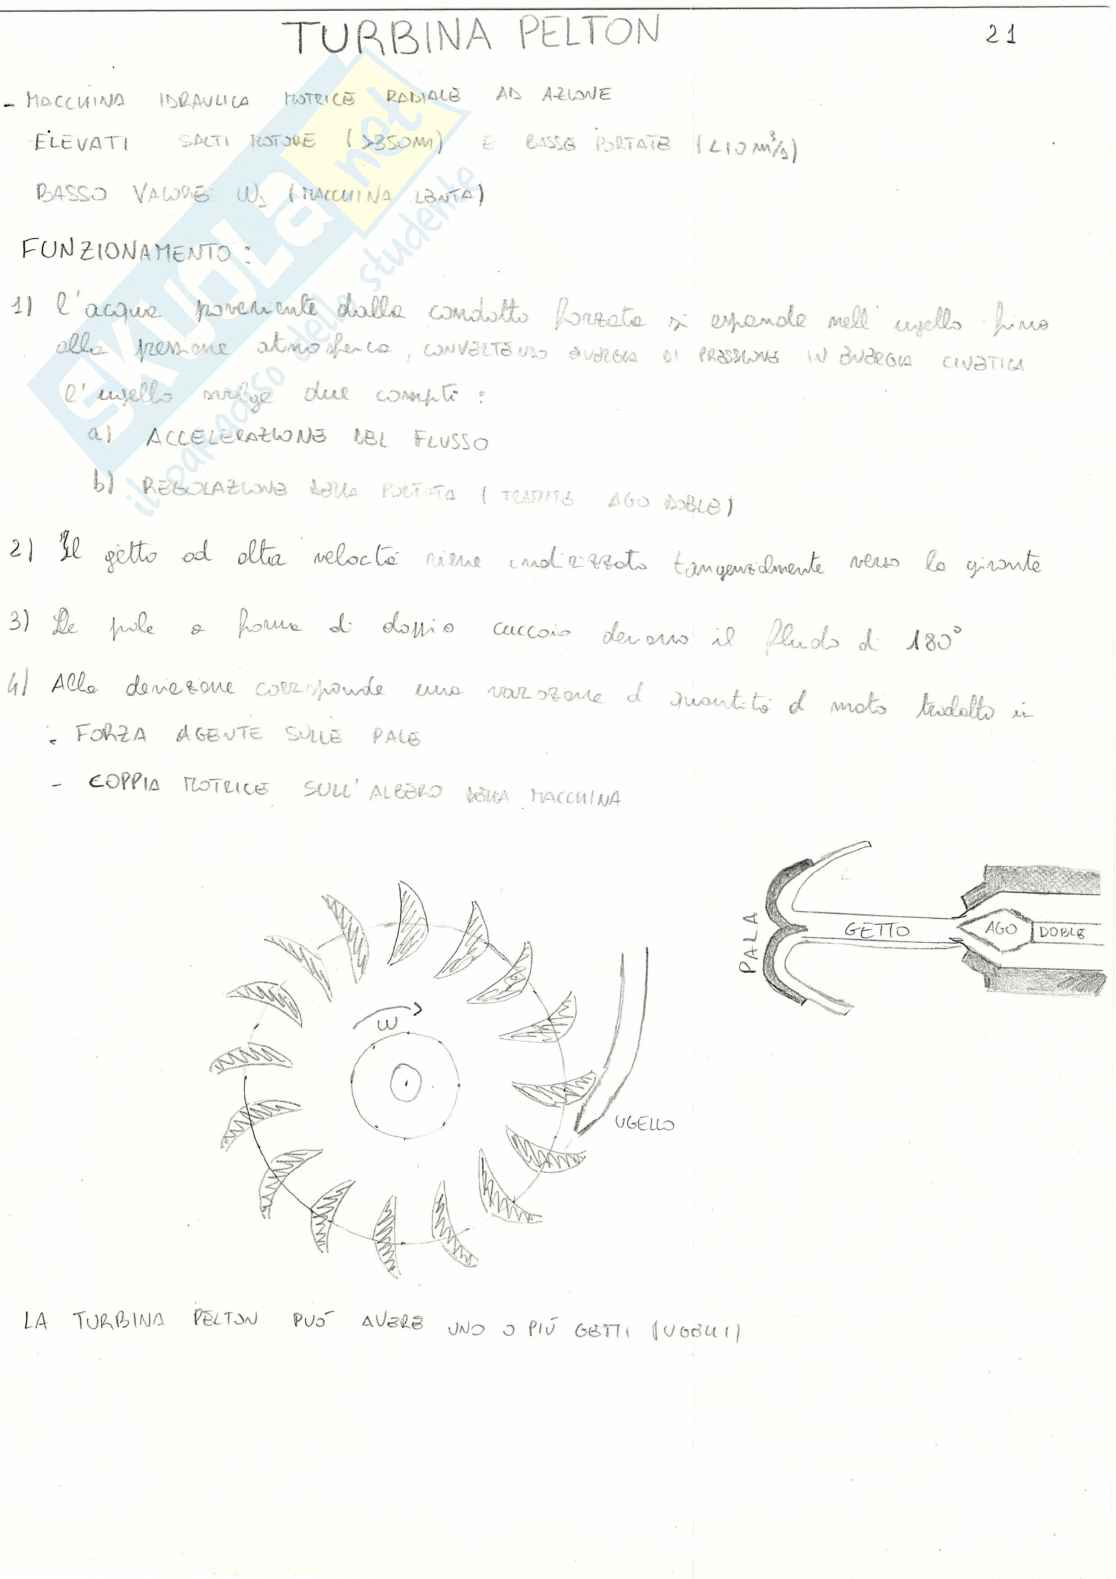 TURBINA PELTON
21
- MACCHINA IDRAULICA MOTRICE RADIALE AD AZIONE
ELEVATI SALTI MOTORE (>350m) E BASSE PORTATE (<10 m³/s)
BASSO VALORE ωs (MACCHINA LENTA)
FUNZIONAMENTO:
1) l'acqua proveniente dalla condotta forzata si espande nell'ugello fino
alla pressione atmosferica, CONVERTENDO ENERGIA DI PRESSIONE IN ENERGIA CINETICA
l'ugello svolge due compiti:
a) ACCELERAZIONE DEL FLUSSO
b) REGOLAZIONE DELLA PORTATA (TRAMITE AGO DOBLE)
2) Il getto ad alta velocità viene indirizzato tangenzialmente verso la girante
3) Le pale a forma di doppio cucchiaio deviano il fluido di 180°
4) Alla deviazione corrisponde una variazione di quantità di moto tradotta in
- FORZA AGENTE SULLE PALE
- COPPIA MOTRICE SULL'ALBERO DELLA MACCHINA
PALA
GETTO
AGO DOBLE
ω
UGELLO
LA TURBINA PELTON PUÓ AVERE UNO O PIÚ GETTI (UGELLI)
SKUOLA.net
il paradiso dello studente